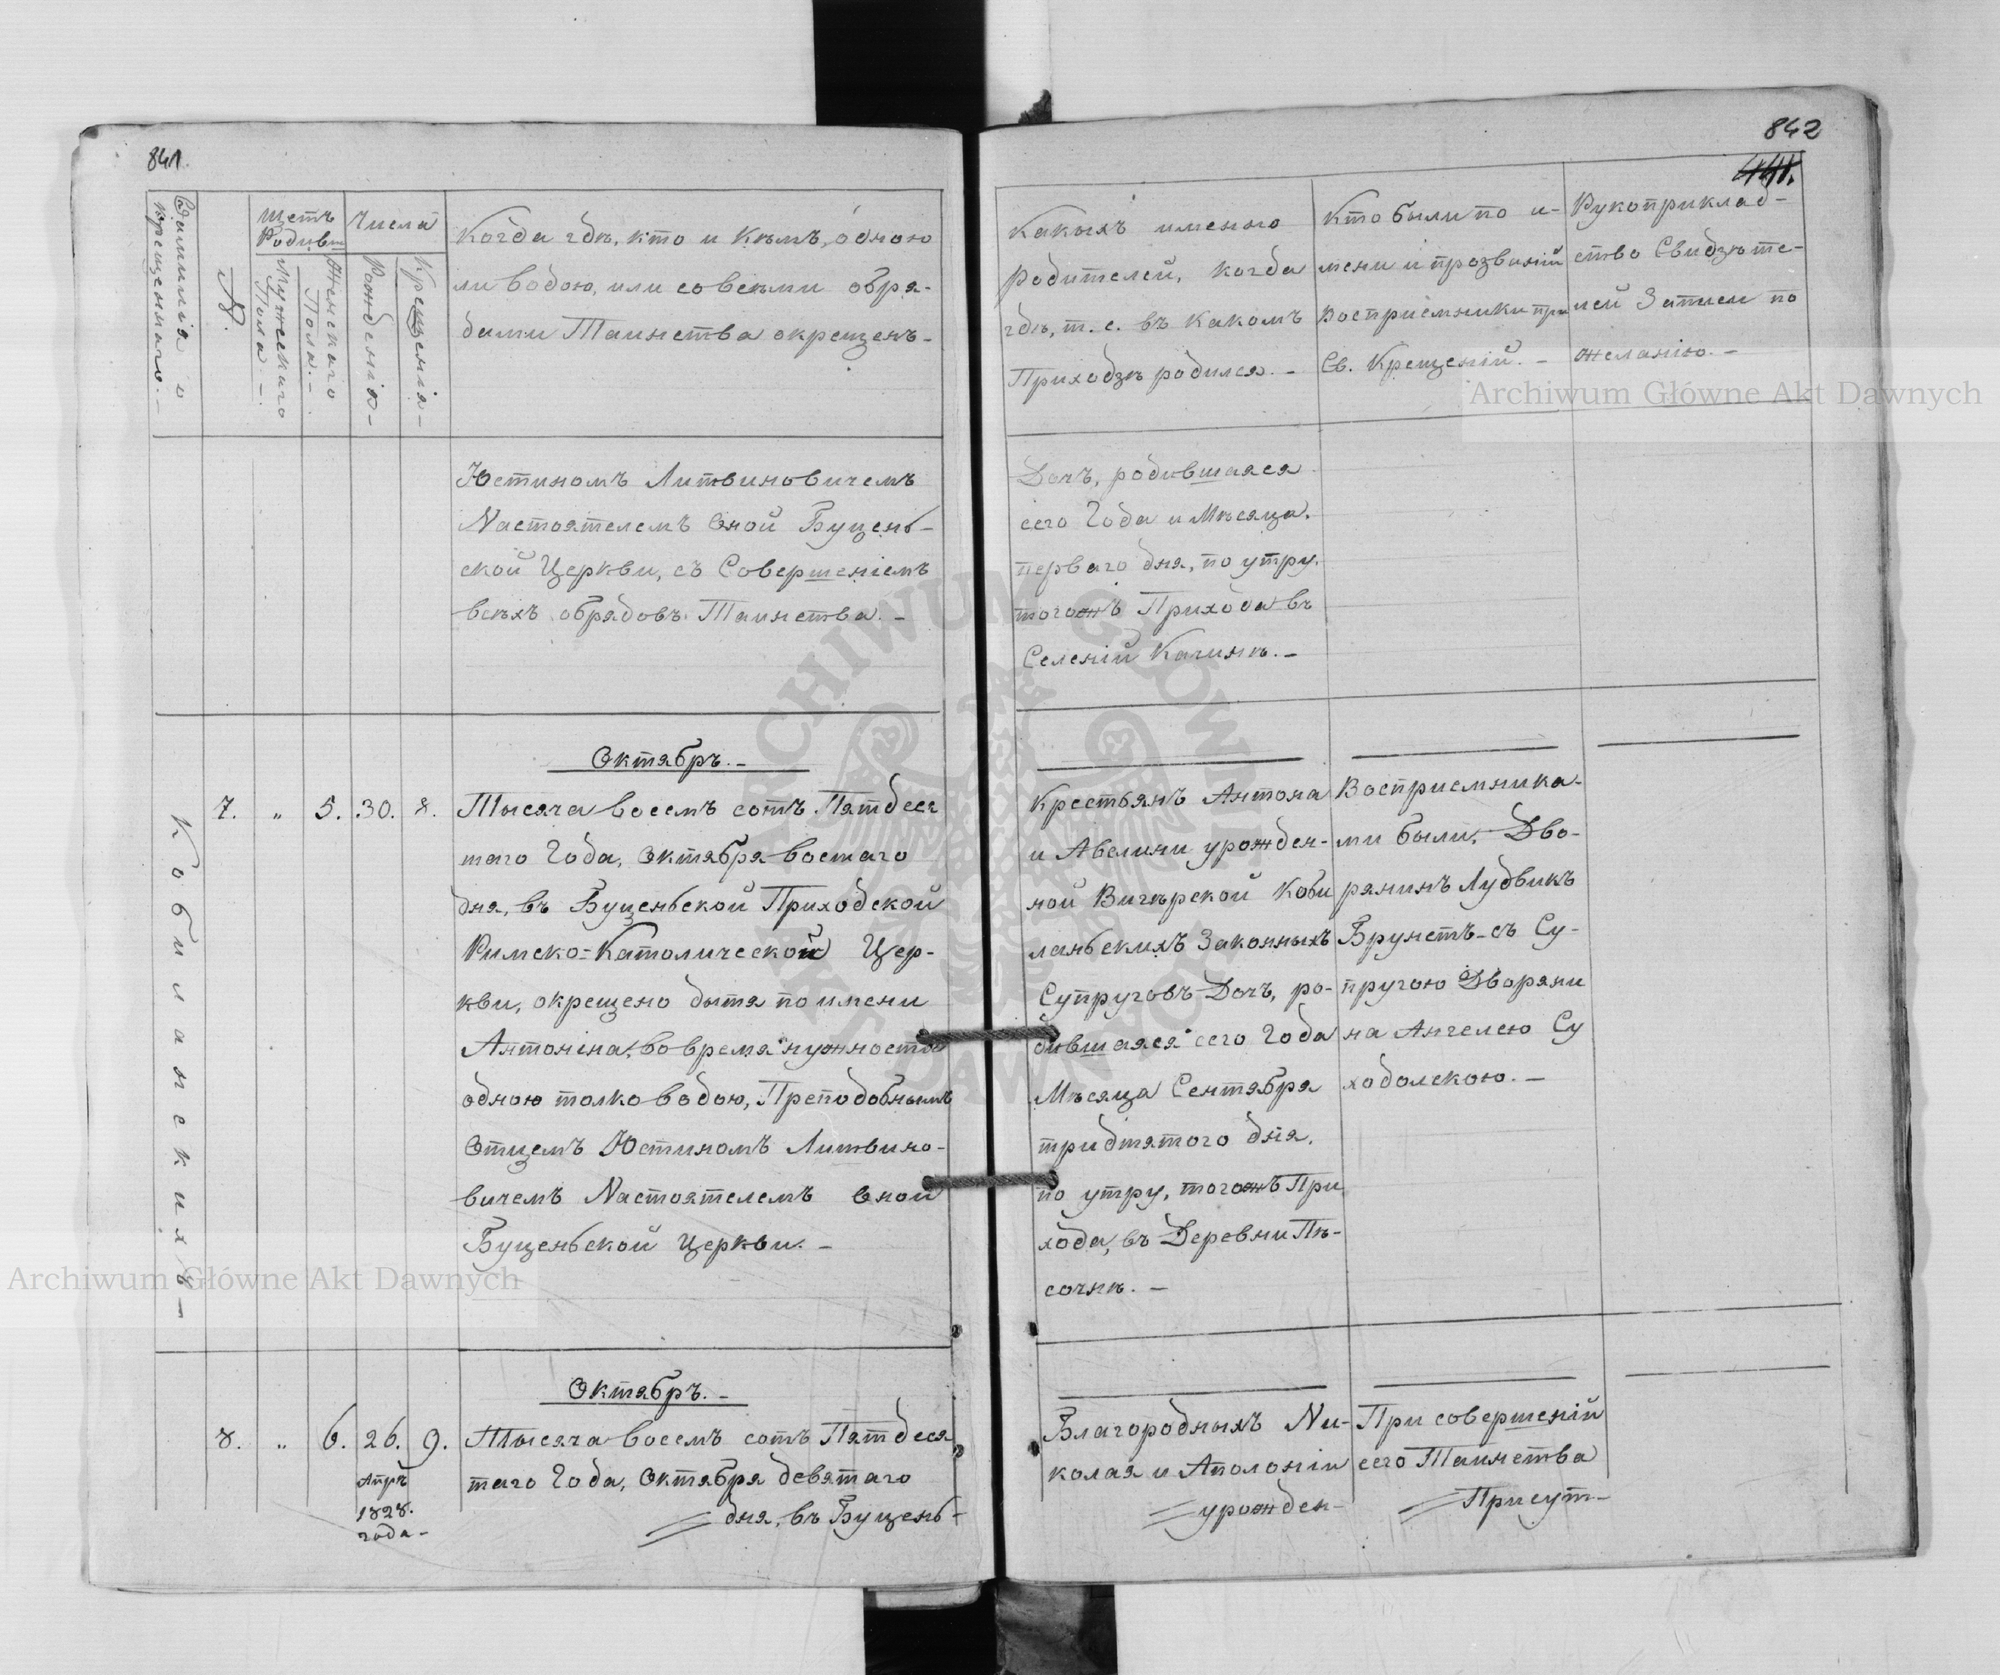 841.
Фамилія
крещеннаго. –
№.
Щетъ
Родивш
Мужескаго
Пола. –
Женскаго
Пола. –
Числа
Рожденія –
Крещенія –
Когда гдѣ, кто и Кѣмъ, одною
ли водою, или совсѣми обря-
дами Таинства окрещенъ –
Юстиномъ Литвиновичемъ
Настоятелемъ Оной Буцень-
ской Церкви, съ Совершеніемъ
всѣхъ обрядовъ Таинства. –
Кобиланскихъ –
Октябръ. –
7. „ 5. 30. 8.
Тысяча восемъ сотъ Пятдеся
таго Года, Октября восмаго
дня, въ Буценьской Приходской
Римско-Католической Цер-
кви, окрещено дитя по имени
Антоніна, во время нужности
одною толко водою, Преподобнымъ
Отцемъ Юстиномъ Литвино-
вичемъ Настоятелемъ Оной
Буценьской Церкви. –
Октябръ. –
8. „ 6. 26. 9.
Апрѣ
1828.
года –
Тысяча восемъ сотъ Пятдеся
таго Года, Октября девятаго
дня, въ Буцень-
842
441.
Какихъ именно
Родителей, когда
гдѣ, т. е. въ какомъ
Приходѣ родился. –
Кто были по и-
мени и прозваній
Восприемники при
Св. Крещеній. –
Рукоприклад-
ство Свидѣте-
лей Записи по
желанію. –
Дочъ, родившаяся
сего Года и Мѣсяца.
перваго дня, по утру.
тогожъ Прихода въ
Селеній Качинѣ. –
Крестьянъ Антона
и Авелини урожден-
ной Вигѣрской Коби
ланьскихъ Законныхъ
Супруговъ Дочъ, ро-
дившаяся сего Года
Мѣсяца Сентября
тридтятого дня,
по утру, тогожъ При
хода, въ Деревни Пѣ-
сочнѣ. –
Восприемника-
ми были, Дво-
рянинъ Лудвикъ
Брунетъ – съ Су-
пругою Дворяни
на Ангелею Су
ходолскою. –
Благородныхъ Ни-
колая и Аполоніи
урожден-
При совершеній
сего Таинства
Присут-
Archiwum Główne Akt Dawnych
Archiwum Główne Akt Dawnych